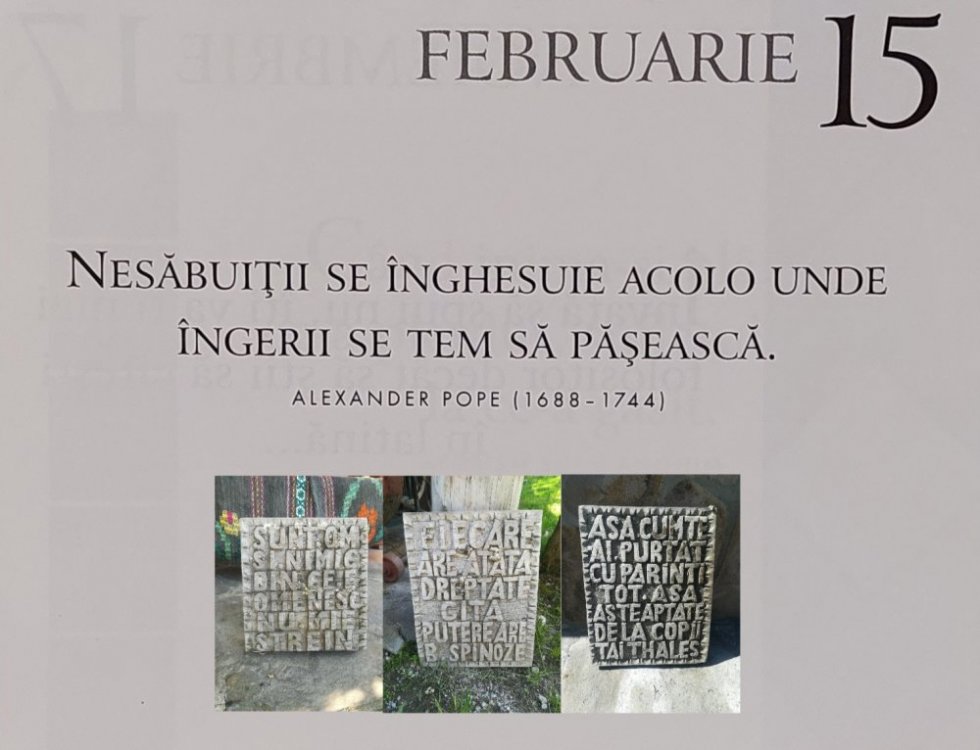 FEBRUARIE 15
NESĂBUIŢII SE ÎNGHESUIE ACOLO UNDE
ÎNGERII SE TEM SĂ PĂŞEASCĂ.
ALEXANDER POPE (1688–1744)
SUNT.OM
SI.NIMIC
DIN.CE.E
OMENESC
NU.MIE
STREIN
FIECARE
ARE.ATATA
DREPTATE
CITA
PUTERE ARE
B. SPINOZE
ASA.CUM TE
AI.PURTAT
CU PARINTI
TOT.ASA
ASTEAPTATE
DE LA COPII
TAI THALES